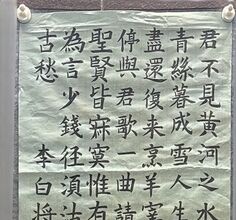 君不見黄河之水
青絲暮成雪人生
盡還復来烹羊宰
停與君歌一曲請
聖賢皆寂寞惟有
為言少錢徑須沽
古愁 李白將